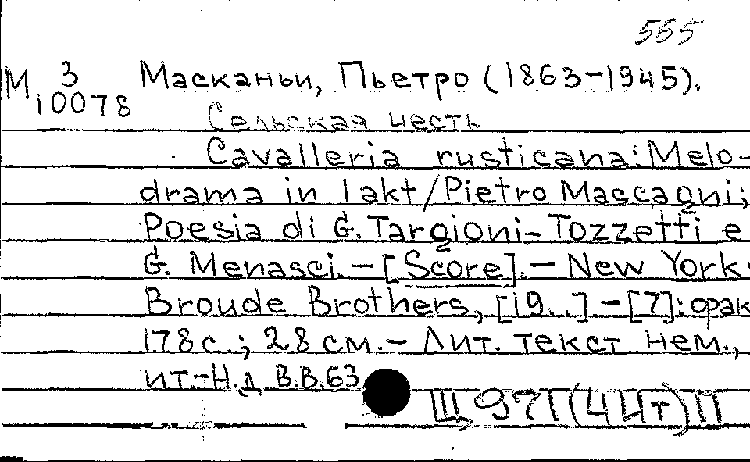 555
М 3 Масканьи, Пьетро (1863-1945).
10078
Сельская честь
Cavalleria rusticana: Melo-
drama in 1 akt/Pietro Mascagni;
Poesia di G. Targioni-Tozzetti e
G. Menasci.-[Score].- New York:
Broude Brothers, [19..] -[7]: фак
178с.; 28 см.- Лит. текст нем.,
ит.-Н.д. В.В.63
Щ971(4Ит)П